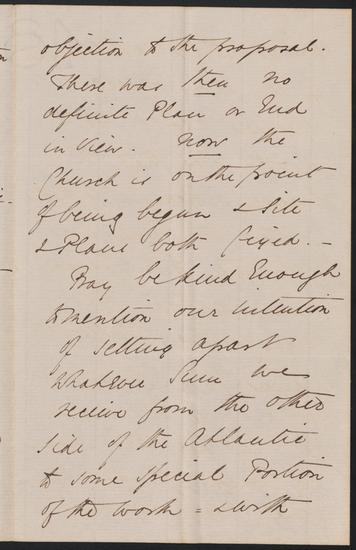 objection to the proposal.
There was then no
definite Plan or End
in View. Now the
Church is on the point
of being begun & Site
& Plans both fixed. —
Pray be kind Enough
to mention our intention
of setting apart
whatever Sum we
receive from the other
side of the Atlantic
to some special Portion
of the work = & with